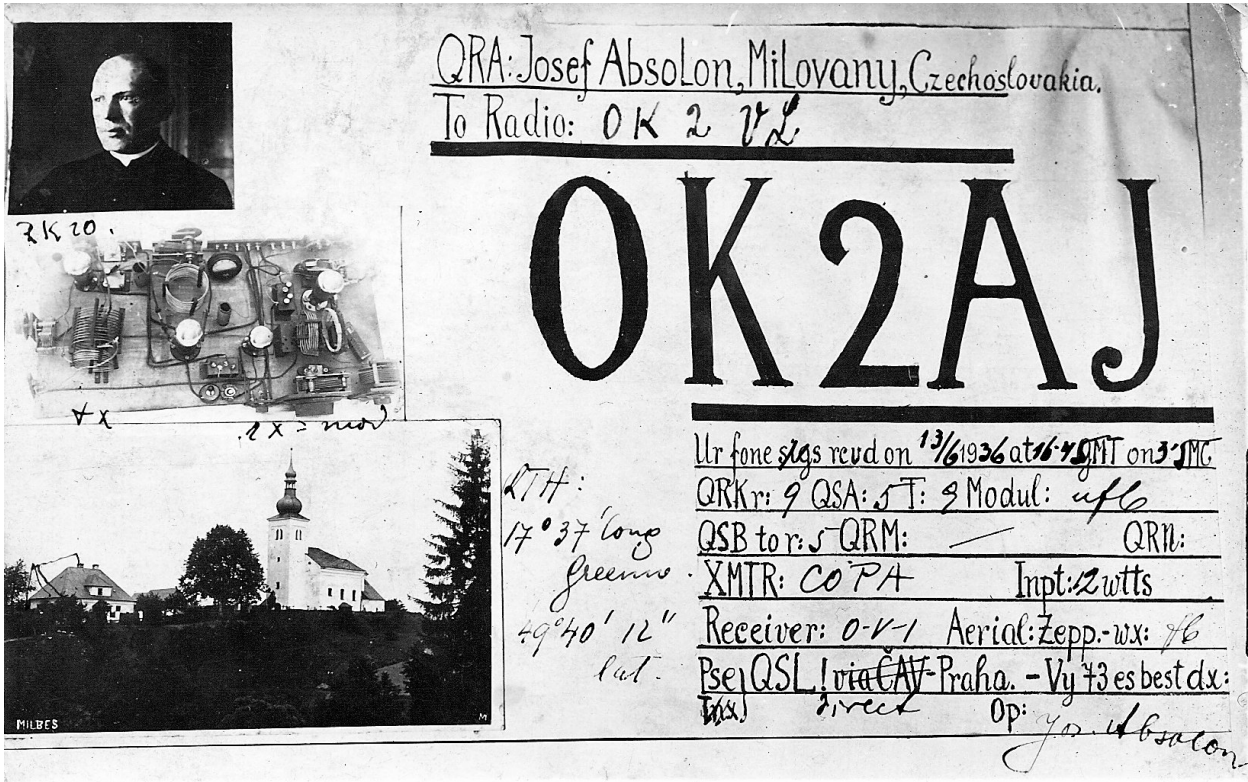 QRA: Josef Absolon, Milovany, Czechoslovakia.
To Radio: OK 2 VL
OK2AJ
RK 20.
tx
rx = mov
MILBES
M
QTH:
17° 37' long
Greenw.
49° 40' 12"
lat.
Ur fone sigs revd on 13/6 1936 at 16·45 GMT on 3·5 MC
QRKr: 9 QSA: 5 T: 9 Modul: ufb
QSB to r: 5 QRM: — QRN:
XMTR: COPA Inpt: 12 wtts
Receiver: 0-V-1 Aerial: Zepp.-wx: fb
Pse QSL! via ČAV-Praha. - Vy 73 es best dx:
Tnx. Direct Op: Jos. Absolon